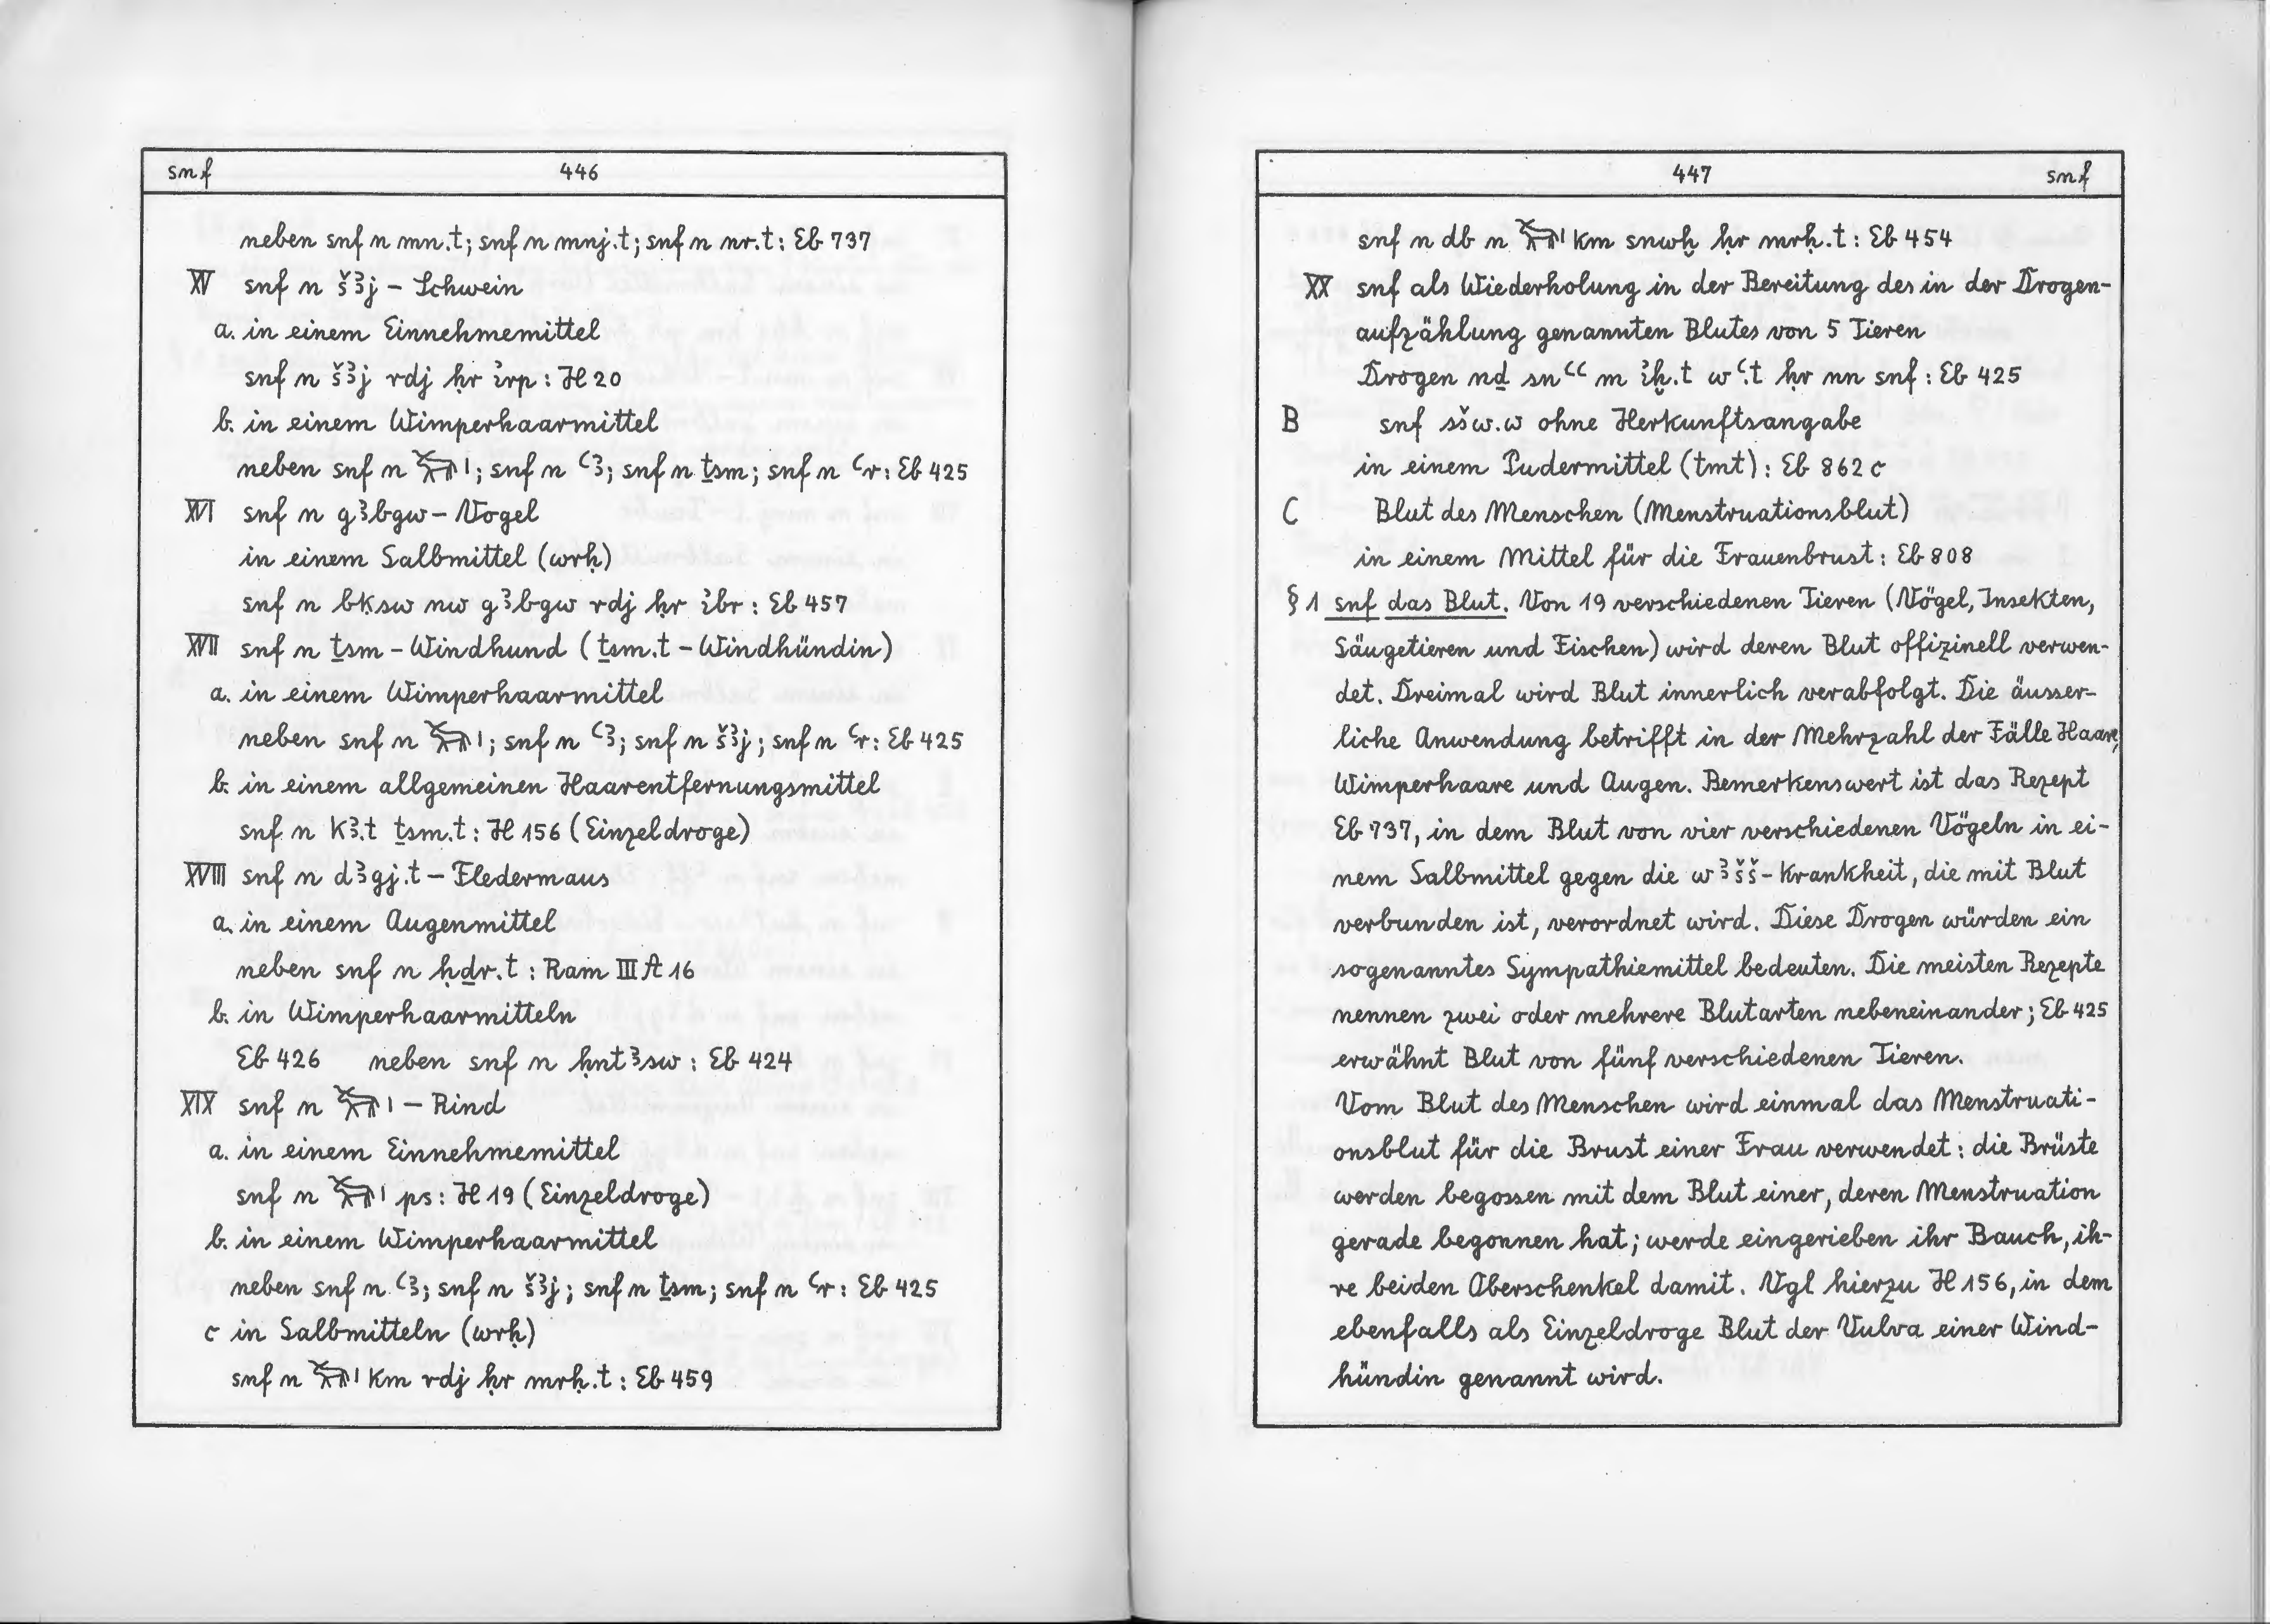 snf 446
neben snf n mn.t; snf n mnj.t; snf n nr.t: Eb 737
XV snf n šꜣj – Schwein
a. in einem Einnehmemittel
snf n šꜣj rdj ḥr ı͗rp : H 20
b. in einem Wimperhaarmittel
neben snf n 𓃒𓏤; snf n ꜥꜣ; snf n ṯsm; snf n ꜥr: Eb 425
XVI snf n gꜣbgw – Vogel
in einem Salbmittel (wrḥ)
snf n bḳsw nw gꜣbgw rdj ḥr ı͗br : Eb 457
XVII snf n ṯsm – Windhund (ṯsm.t – Windhündin)
a. in einem Wimperhaarmittel
neben snf n 𓃒𓏤; snf n ꜥꜣ; snf n šꜣj; snf n ꜥr: Eb 425
b. in einem allgemeinen Haarentfernungsmittel
snf n kꜣ.t ṯsm.t : H 156 (Einzeldroge)
XVIII snf n dꜣgj.t – Fledermaus
a. in einem Augenmittel
neben snf n ḥḏr.t : Ram III A 16
b. in Wimperhaarmitteln
Eb 426 neben snf n ḥntꜣsw : Eb 424
XIX snf n 𓃒𓏤 – Rind
a. in einem Einnehmemittel
snf n 𓃒𓏤 ps: H 19 (Einzeldroge)
b. in einem Wimperhaarmittel
neben snf n ꜥꜣ; snf n šꜣj; snf n ṯsm; snf n ꜥr: Eb 425
c in Salbmitteln (wrḥ)
snf n 𓃒𓏤 km rdj ḥr mrḥ.t : Eb 459
447 snf
snf n db n 𓃒𓏤 km snwḫ ḥr mrḥ.t : Eb 454
XX snf als Wiederholung in der Bereitung des in der Drogen-
aufzählung genannten Blutes von 5 Tieren
Drogen nḏ snꜥꜥ m ı͗ḫ.t wꜥ.t ḥr nn snf : Eb 425
B snf sšw.w ohne Herkunftsangabe
in einem Pudermittel (tmt) : Eb 862 c
C Blut des Menschen (Menstruationsblut)
in einem Mittel für die Frauenbrust : Eb 808
§ 1 snf das Blut. Von 19 verschiedenen Tieren (Vögel, Insekten,
Säugetieren und Fischen) wird deren Blut offizinell verwen-
det. Dreimal wird Blut innerlich verabfolgt. Die äusser-
liche Anwendung betrifft in der Mehrzahl der Fälle Haare,
Wimperhaare und Augen. Bemerkenswert ist das Rezept
Eb 737, in dem Blut von vier verschiedenen Vögeln in ei-
nem Salbmittel gegen die wꜣšš-Krankheit, die mit Blut
verbunden ist, verordnet wird. Diese Drogen würden ein
sogenanntes Sympathiemittel bedeuten. Die meisten Rezepte
nennen zwei oder mehrere Blutarten nebeneinander; Eb 425
erwähnt Blut von fünf verschiedenen Tieren.
Vom Blut des Menschen wird einmal das Menstruati-
onsblut für die Brust einer Frau verwendet : die Brüste
werden begossen mit dem Blut einer, deren Menstruation
gerade begonnen hat; werde eingerieben ihr Bauch, ih-
re beiden Oberschenkel damit. Vgl hierzu H 156, in dem
ebenfalls als Einzeldroge Blut der Vulva einer Wind-
hündin genannt wird.